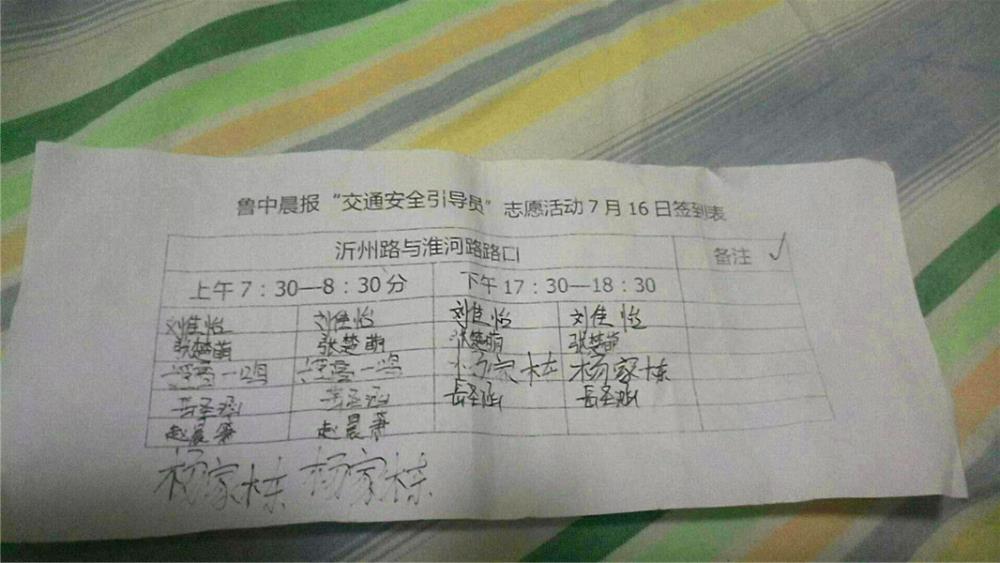 鲁中晨报“交通安全引导员”志愿活动7月16日签到表
沂州路与淮河路路口 备注 ✓
上午7:30—8:30分 下午17:30—18:30
刘佳怡 刘佳怡 刘佳怡 刘佳怡
张楚萌 张楚萌 张楚萌 张楚萌
一鸣 一鸣 杨家栋 杨家栋
岳圣涵 岳圣涵 岳圣涵 岳圣涵
赵晨 赵晨
杨家栋 杨家栋